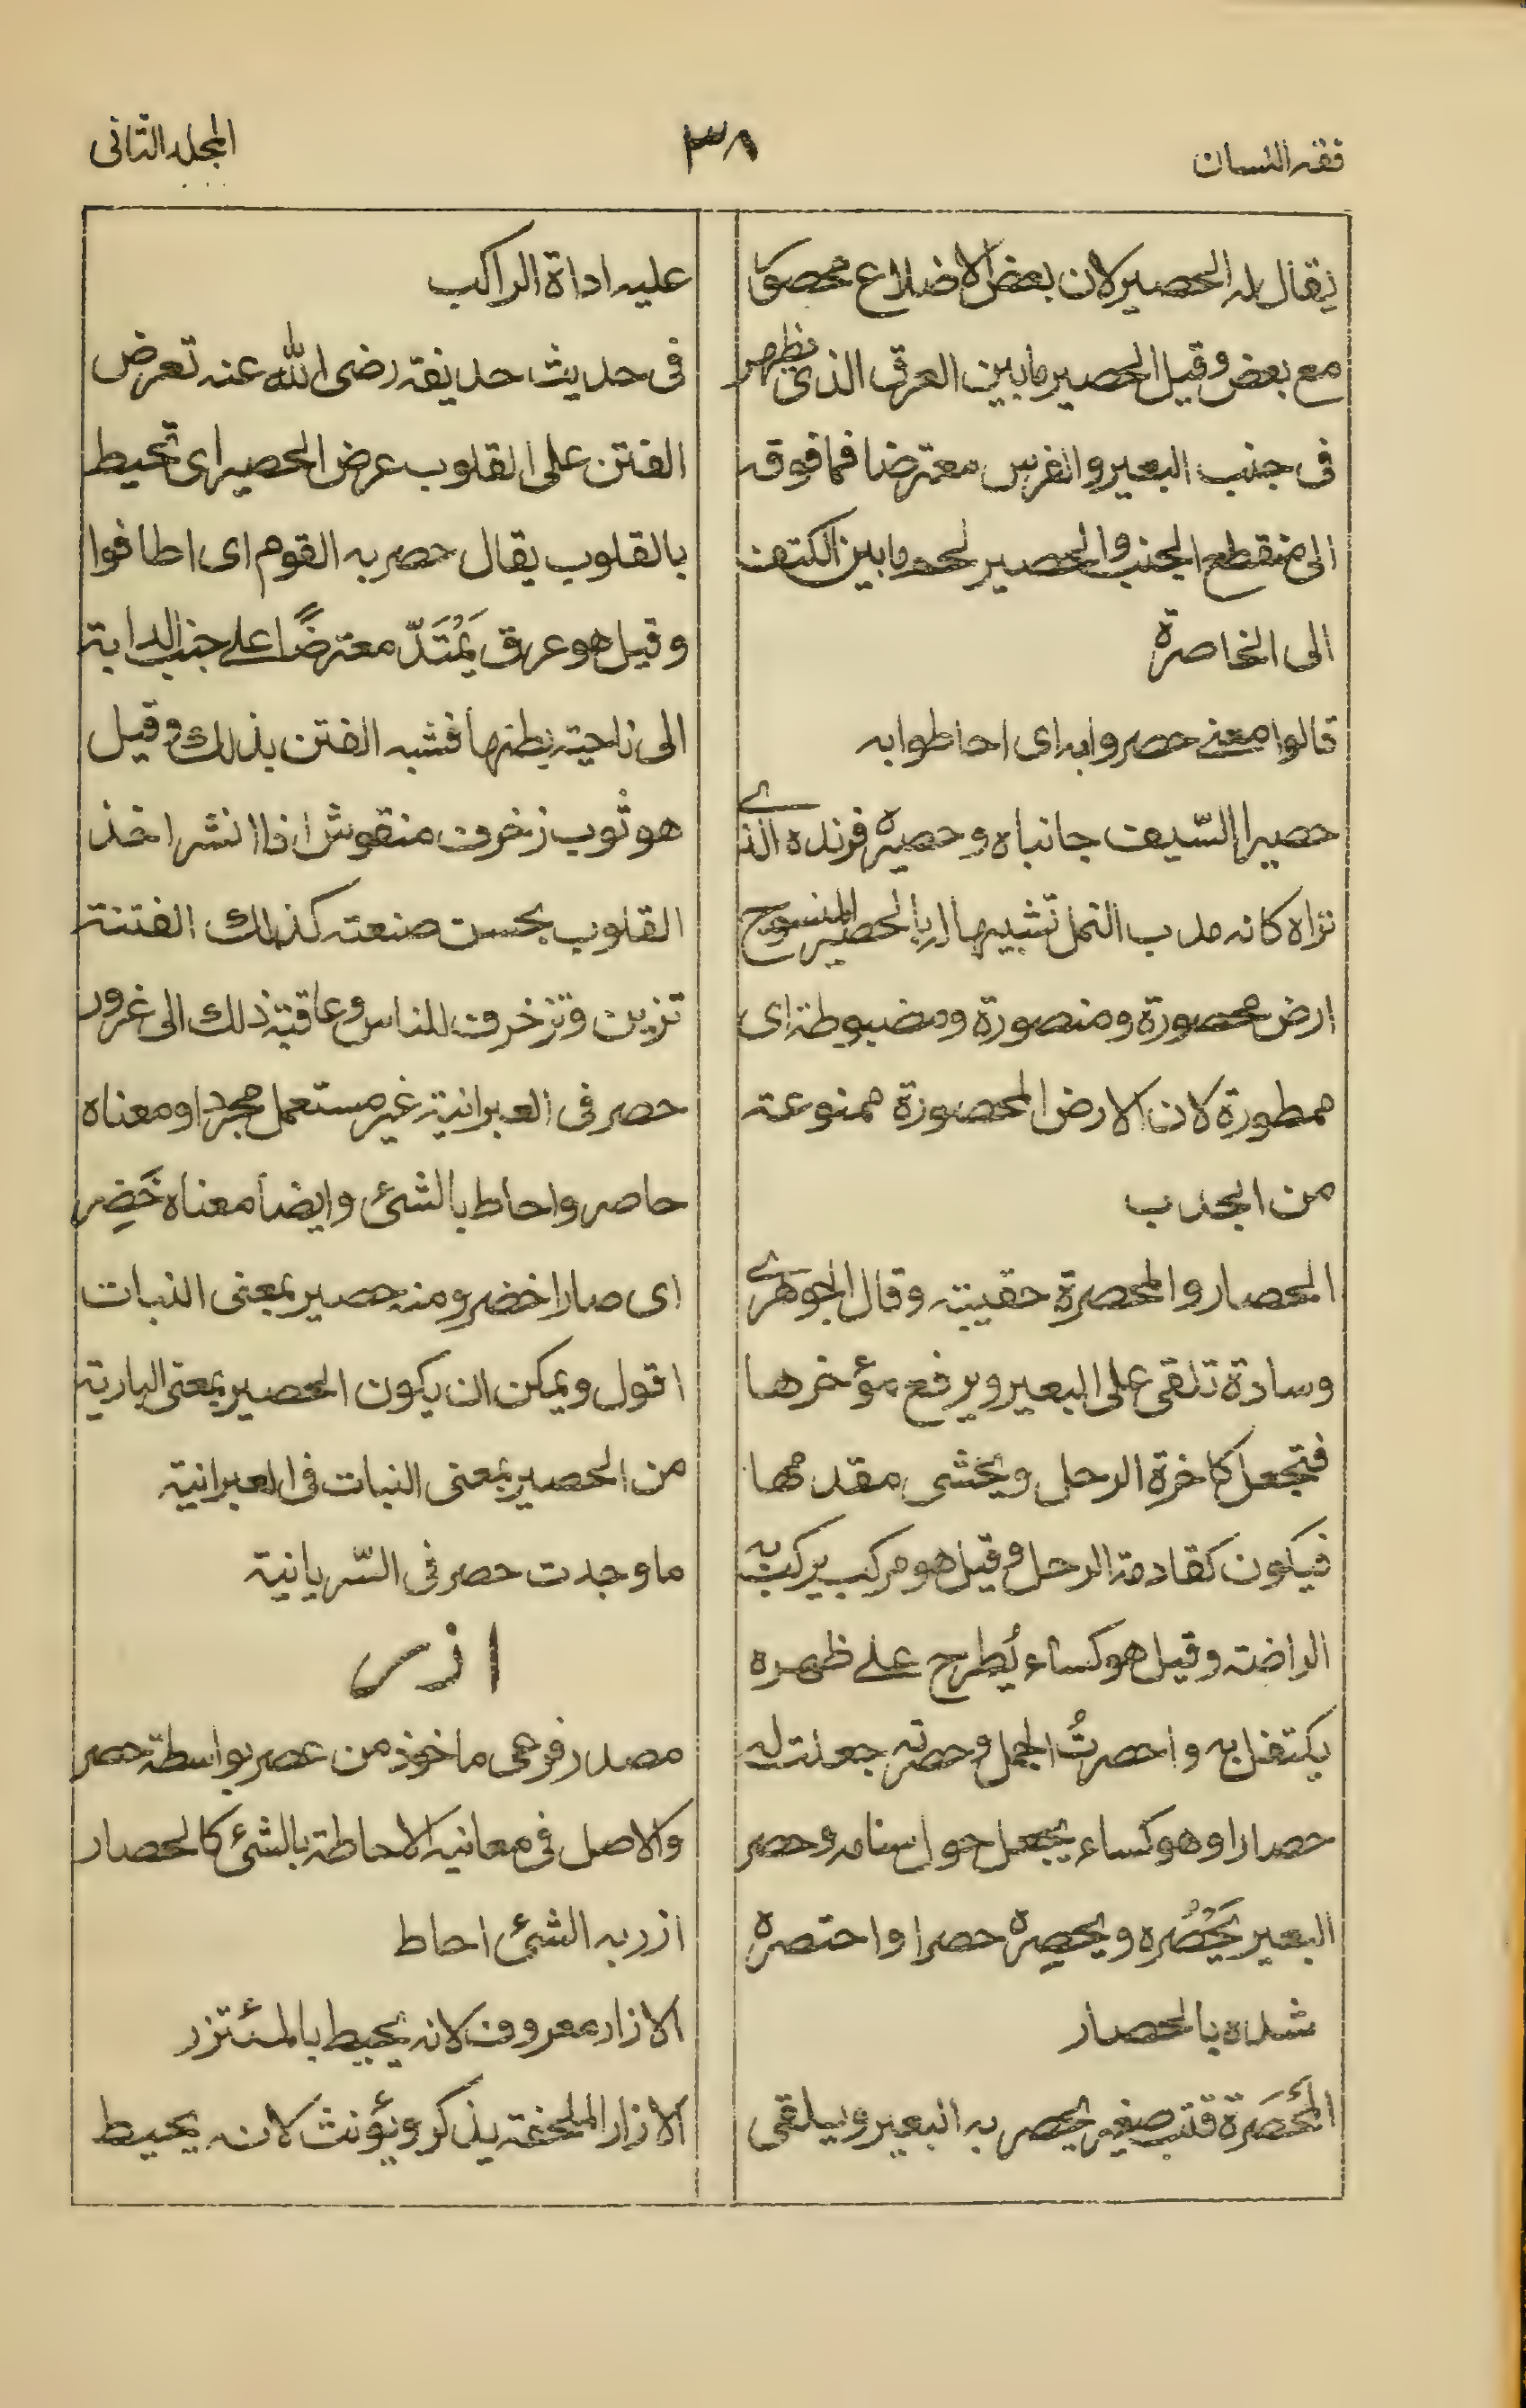 فقه اللسان
٣٨
المجلد الثانى
يقال له الحصير لان بعض الاضلاع محصور
مع بعض وقيل الحصير ما بين العرق الذى يظهر
فى جنب البعير والفرس معترضا فما فوقه
الى منقطع الجنب والحصير لحم ما بين الكتف
الى الخاصرة
قالوا معنے حصروا به اى احاطوا به
حصيرا السّيف جانباه وحصيره فرنده الذے
تراه كانه مدب النمل تشبيها بالحصير المنسوج
ارض محصورة ومنصورة ومضبوطة اى
ممطورة لان الارض المحصورة ممنوعة
من الجدب
المحصار والمحصرة حقيبة وقال الجوهرے
وسادة تلقى على البعير ويرفع مؤخرها
فتجعل كاخرة الرحل ويحشى مقدمها
فيكون كقادمة الرحل وقيل هو مركب يركب به
الراضة وقيل هو كساء يُطرح علے ظهره
يكتفل به واحصرتُ الجمل وحصرته جعلت له
حصارا وهو كساء يجعل حول سنامه وحصر
البعير يَحْصُره ويحصِره حصرا واحتصره
شده بالحصار
المُحْصَرة قتب صغير يحصر به البعير ويلقى
عليه اداة الراكب
فى حديث حذيفة رضى الله عنه تعرض
الفتن على القلوب عرض الحصير اى تحيط
بالقلوب يقال حصر به القوم اى اطافوا
وقيل هو عرق يَمْتَدّ معترضًا علے جنب الدابة
الى ناحية بطنها فشبه الفتن بذلك وقيل
هو ثوب زخرف منقوش اذا انشر اخذ
القلوب بحسن صنعته كذلك الفتنة
تزين وتزخرف للناس وعاقبة ذلك الى غرور
حصر فى العبرانية غير مستعمل مجردا ومعناه
حاصر واحاط بالشئ وايضا معناه خَضِر
اى صار اخضر ومنه حصير بمعنى النبات
اقول ويمكن ان يكون الحصير بمعنى البارية
من الحصير بمعنى النبات فى العبرانية
ما وجدت حصر فى السّريانية
ازر
مصدر فرعى ماخوذ من عصر بواسطة حصر
والاصل فى معانيه الاحاطة بالشئ كالحصار
ازر به الشئ احاط
الازار معروف لانه يحيط بالمئتزر
الازار الملحفة يذكر ويؤنث لانه يحيط